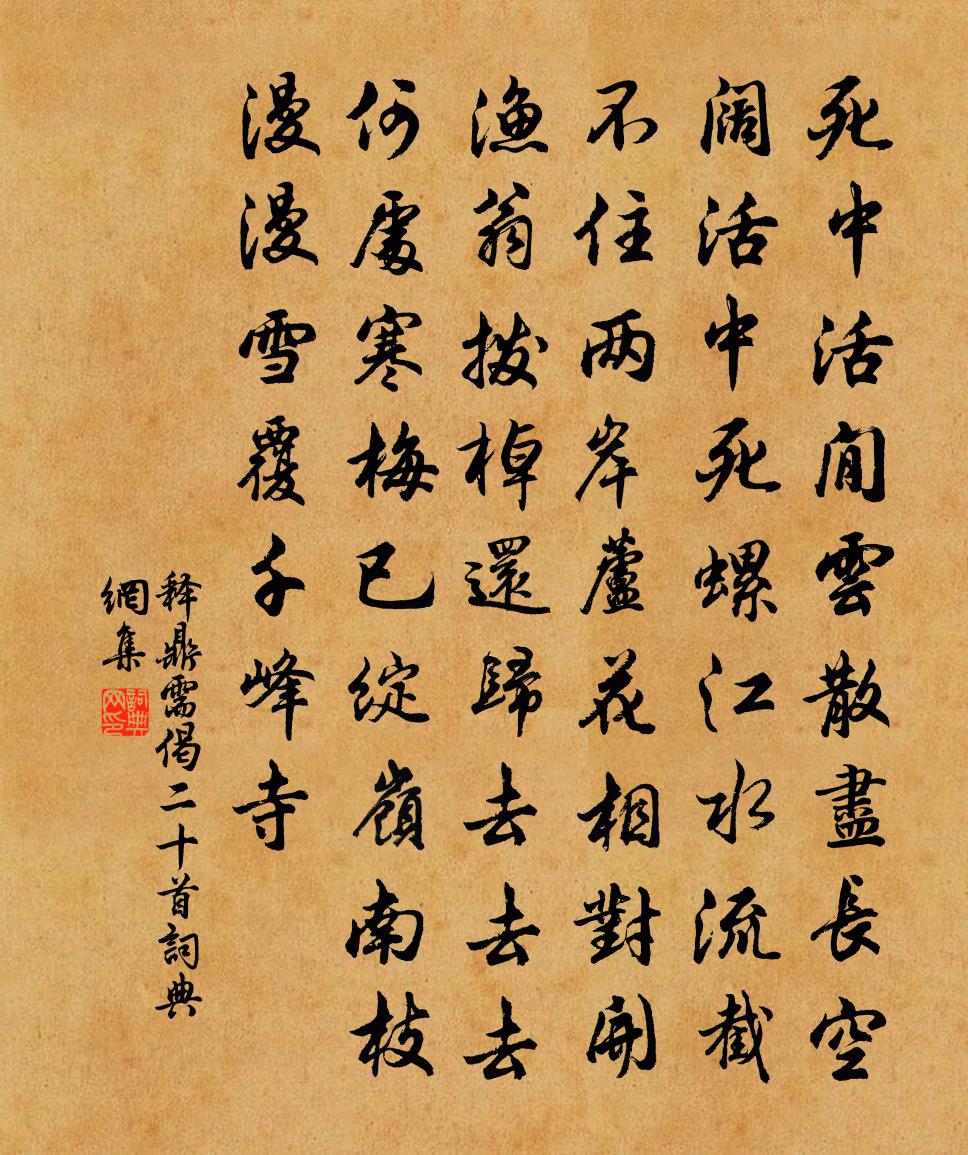 死中活閒雲散盡長空
阔活中死螺江水流截
不住两岸蘆花相對開
漁翁拨棹還歸去去去
何處寒梅已綻嶺南枝
漫漫雪覆千峰寺
释鼎需偈二十首詞典
網集
詞典网印